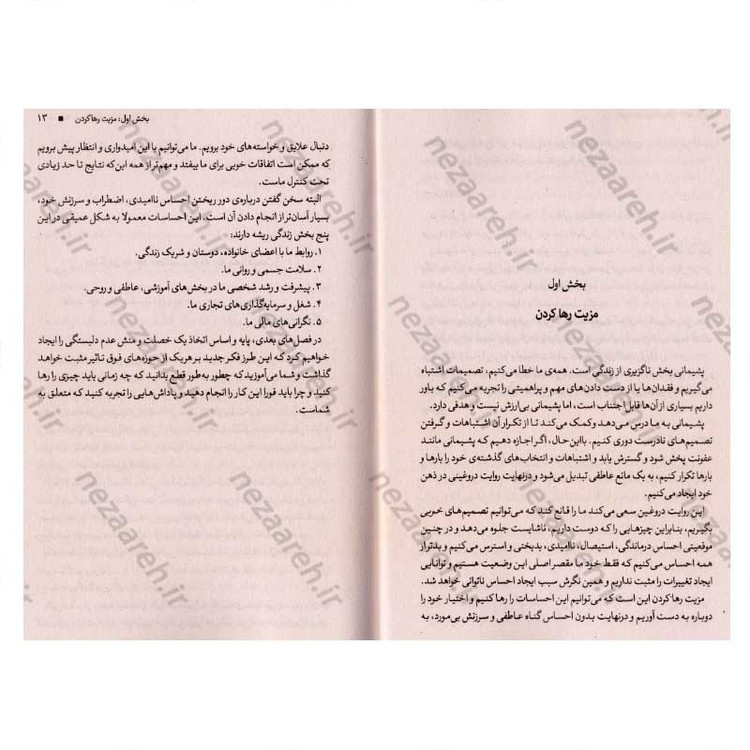 بخش اول
مزیت رها کردن
پشیمانی بخش ناگزیری از زندگی است. همه‌ی ما خطا می‌کنیم، تصمیمات اشتباه
می‌گیریم و فقدان‌ها یا از دست دادن‌های مهم و پراهمیتی را تجربه می‌کنیم که باور
داریم بسیاری از آن‌ها قابل اجتناب است، اما پشیمانی بی‌ارزش نیست و هدفی دارد.
پشیمانی به ما درس می‌دهد و کمک می‌کند تا از تکرار آن اشتباهات و گرفتن
تصمیم‌های نادرست دوری کنیم. بااین‌حال، اگر اجازه دهیم که پشیمانی مانند
عفونت پخش شود و گسترش یابد و اشتباهات و انتخاب‌های گذشته‌ی خود را بارها و
بارها تکرار کنیم، به یک مانع عاطفی تبدیل می‌شود و درنهایت روایت دروغینی در ذهن
خود ایجاد می‌کنیم.
این روایت دروغین سعی می‌کند ما را قانع کند که می‌توانیم تصمیم‌های خوبی
بگیریم، بنابراین چیزهایی را که دوست داریم، ناشایست جلوه می‌دهد و در چنین
موقعیتی احساس درماندگی، استیصال، ناامیدی، بدبختی و استرس می‌کنیم و بدتر از
همه احساس می‌کنیم که فقط خود ما مقصر اصلی این وضعیت هستیم و توانایی
ایجاد تغییرات را مثبت نداریم و همین نگرش سبب ایجاد احساس ناتوانی خواهد شد.
مزیت رها کردن این است که می‌توانیم این احساسات را رها کنیم و اختیار خود را
دوباره به دست آوریم و درنهایت بدون احساس گناه عاطفی و سرزنش بی‌مورد، به
بخش اول: مزیت رها کردن ■ ۱۳
دنبال علایق و خواسته‌های خود برویم. ما می‌توانیم با این امیدواری و انتظار پیش برویم
که ممکن است اتفاقات خوبی برای ما بیفتد و مهم‌تر از همه این‌که نتایج تا حد زیادی
تحت کنترل ماست.
البته سخن گفتن درباره‌ی دور ریختن احساس ناامیدی، اضطراب و سرزنش خود،
بسیار آسان‌تر از انجام دادن آن است. این احساسات معمولا به شکل عمیقی در این
پنج بخش زندگی ریشه دارند:
۱. روابط ما با اعضای خانواده، دوستان و شریک زندگی.
۲. سلامت جسمی و روانی ما.
۳. پیشرفت و رشد شخصی ما در بخش‌های آموزشی، عاطفی و روحی.
۴. شغل و سرمایه‌گذاری‌های تجاری ما.
۵. نگرانی‌های مالی ما.
در فصل‌های بعدی، پایه و اساس اتخاذ یک خصلت و منش عدم دلبستگی را ایجاد
خواهیم کرد که این طرز فکر جدید بر هریک از حوزه‌های فوق تاثیر مثبت خواهد
گذاشت و شما می‌آموزید که چطور به‌طور قطع بدانید که چه زمانی باید چیزی را رها
کنید و چرا باید فورا این کار را انجام دهید و پاداش‌هایی را تجربه کنید که متعلق به
شماست.
nezaareh.ir